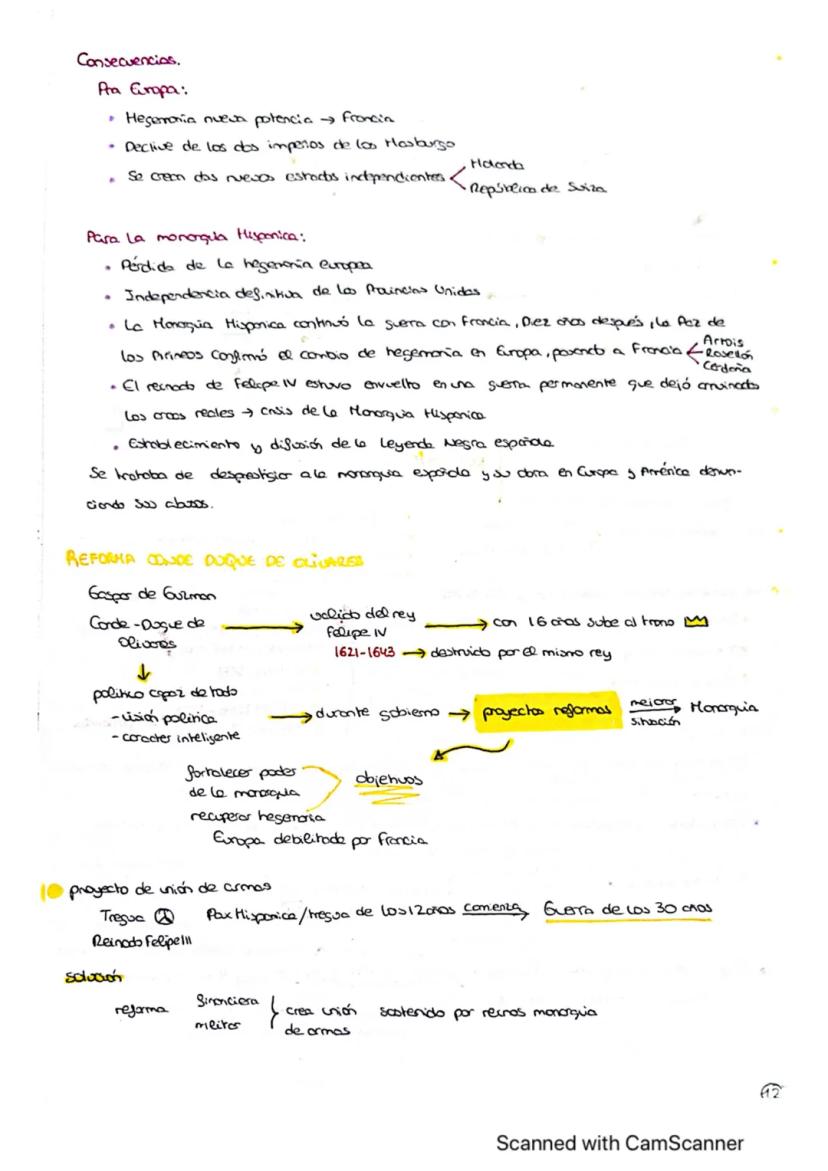 Consecuencias.
Para Europa:
• Hegemonía nueva potencia → Francia
• Declive de los dos imperios de los Hasburgo
Holanda
• Se crean dos nuevos estados independientes
República de Suiza
Para la monarquía Hispanica:
• Pérdida de la hegemonía europea
• Independencia definitiva de las Provincias Unidas
• La Monarquía Hispanica continuó la guerra con Francia, Diez años después, la Paz de
Artois
los Pirineos confirmó el cambio de hegemonía en Europa, pasando a Francia
Rosellón
Cerdaña
• El reinado de Felipe IV estuvo envuelto en una guerra permanente que dejó arruinadas
las arcas reales → crisis de la Monarquía Hispanica
• Establecimiento y difusión de la Leyenda Negra española
Se trataba de desprestigiar a la monarquía española y su obra en Europa y América denun-
ciando sus abusos.
REFORMA CONDE DUQUE DE OLIVARES
Gaspar de Guzman
Conde-Duque de Olivares → valido del rey Felipe IV → con 16 años sube al trono
1621-1643 → destruido por el mismo rey
↓
político capaz de todo
- visión política
- caracter inteligente
→ durante gobierno → proyectos reformas mejorar situación → Monarquía
fortalecer poder
de la monarquía
objetivos
recuperar hegemonía
Europa debilitada por Francia
1 proyecto de unión de armas
Tregua Pax Hispanica/tregua de los 12 años comienza → Guerra de los 30 años
Reinado Felipe III
solución
reforma financiera
militar
crea unión
de armas
sostenido por reinos monarquía
12
Scanned with CamScanner